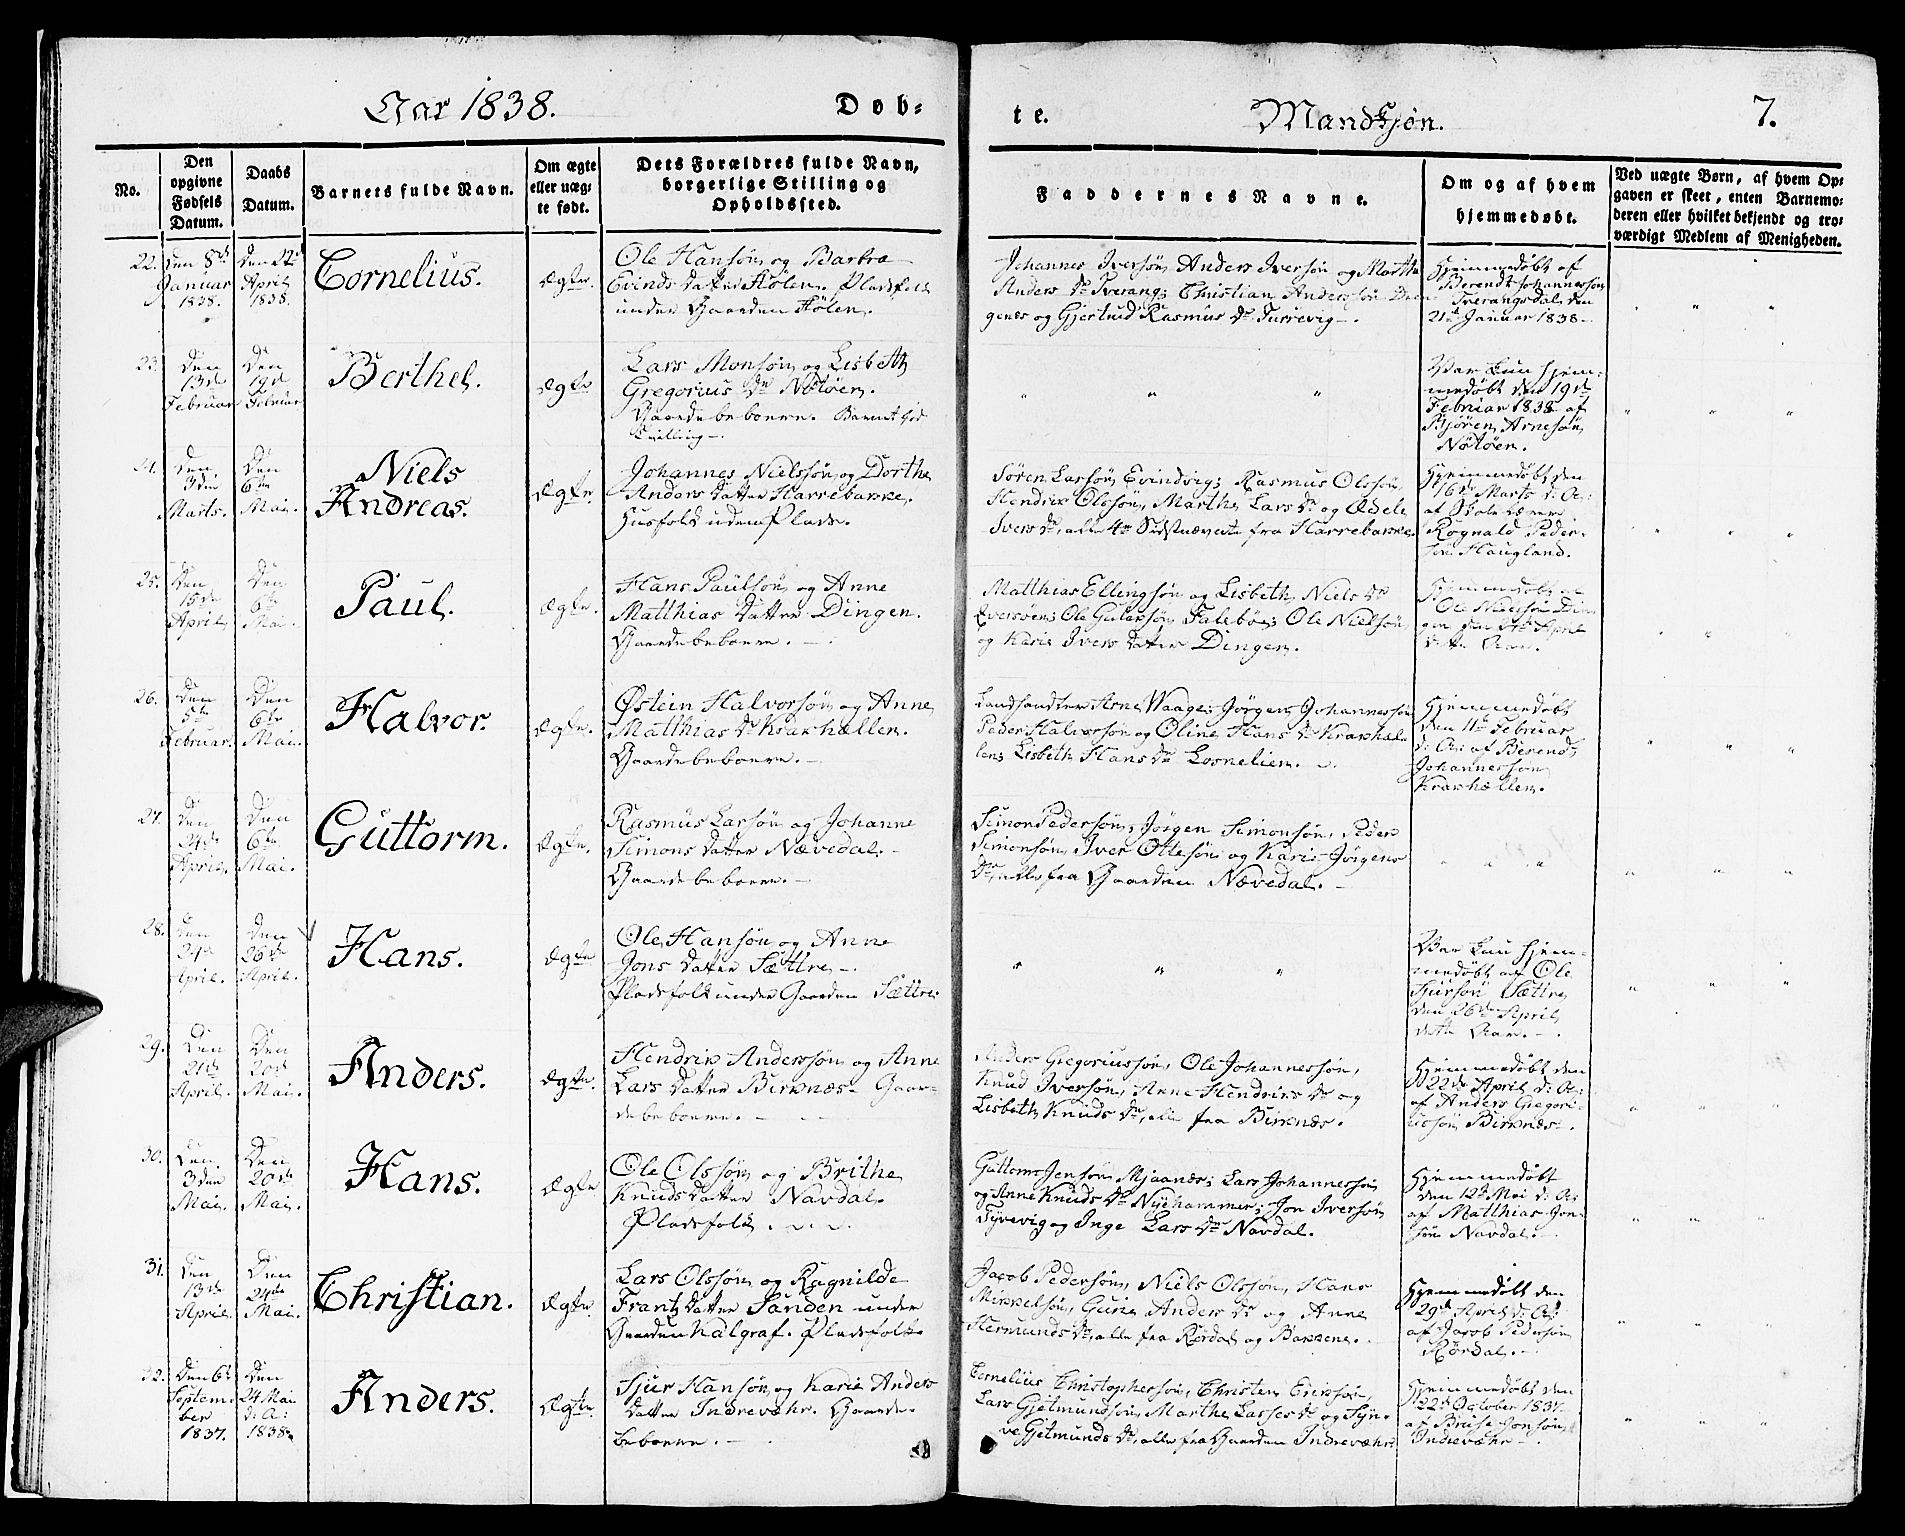 Aar 1838. Døb-
te. Mandkjøn. 7.
No.
Den opgivne Fødsels Datum.
Daabs Datum.
Barnets fulde Navn.
Om ægte eller uæg-
te født.
Dets Forældres fulde Navn,
borgerlige Stilling og
Opholdssted.
Faddernes Navne.
Om og af hvem
hjemmedøbt.
Ved uægte Børn, af hvem Op-
gaven er skeet, enten Barnemo-
deren eller hvilket bekjendt og tro-
værdigt Medlem af Menigheden.
22.
Den 8de
Januar
1838.
Den 22de
April
1838.
Cornelius.
Ægte.
Ole Hansøn og Barbra
Evinds Datter Hølen. Pladsfolk
under Gaarden Hølen.
Johannes Iversøn, Anders Iversøn og Marthe
Anders Dr Tverang; Christian Anderssøn
og Gjertrud Rasmus Dr Turrevig.
Hjemmedøbt af
Berendt Johannessøn
Tverangsdal den
21de Januar 1838.
23.
Den
13de
Februar
Den
19de
Februar
Berthel.
Ægte
Lars Monsøn og Lisbeth
Gregorius Dr Nøtøen.
Gaardebeboere. Barnet
Var kun hjem-
medøbt den 19de
Februar 1838 af
Bjøren Arnesøn
Nøtøen.
24.
Den
3die
Marts.
Den
6te
Mai.
Niels
Andreas.
Ægte
Johannes Nielssøn og Dorthe
Anders Datter Harrebakke.
Husfolk uden Plads.
Søren Larsøn Evindvig; Rasmus Olssøn,
Hendrik Olssøn, Marthe Lars Dr og Adele
Ivers Dr, alle 4re Sidstnævnte fra Harrebakke.
Hjemmedøbt den
16de Marts d: A:
af Skole Lærer
Rognald Peder-
søn Haugland.
25.
Den
15de
April
Den
6te
Mai.
Paul.
Ægte.
Hans Paulsøn og Anne
Matthias Datter Dingen.
Gaardebeboere.
Matthias Ellingsøn og Lisbeth Niels Dr
Iversøen; Ole Gulaksøn Faleböe; Ole Nielsøn
og Karie Ivers Datter Dingen.
Hjemmedøbt af
Ole Nielssøn Din-
gen den 21de April
dette Aar.
26.
Den
5te
Februar.
Den
6te
Mai.
Halvor.
Ægte.
Østein Halvorsøn og Anne
Matthias Dr Krakhællen.
Gaardebeboere.
Landhandler Arne Waage; Jørgen Johannessøn
Peder Halvorsøn og Oline Hans Dr Krakhæl-
len; Lisbeth Hans Dr Losnelien.
Hjemmedøbt
den 11te Februar
d: A: af Berends
Johannessøn
Krakhællen.
27.
Den
24de
April.
Den
6te
Mai.
Guttorm.
Ægte.
Rasmus Larsøn og Johanne
Simons Datter Nævedal.
Gaardebeboere.
Simon Pedersøn; Jørgen Simonsøn, Peder
Simonsøn, Iver Ottesøn og Karie Jørgens
Dr, alle fra Gaarden Nævedal.
28.
Den
24de
April.
Den
26de
April.
Hans.
Ægte
Ole Hansøn og Anne
Jons Datter Sættre.
Pladsfolk under Gaarden Sættre.
Var kun hjem-
medøbt af Ole
Sjursøn Sættre
den 26de April
dette Aar.
29.
Den
21de
April.
Den
20de
Mai.
Anders.
Ægte.
Hendrik Anderssøn og Anne
Lars Datter Birknæs. Gaar-
debeboere.
Anders Gregoriussøn, Ole Johannessøn,
Knud Iversøn, Anne Hendriks Dr og
Lisbeth Knuds Dr, alle fra Birknæs.
Hjemmedøbt den
22de April d: A:
af Anders Gregori-
ussøn Birknæs.
30.
Den
3die
Mai.
Den
20de
Mai.
Hans.
Ægte
Ole Olssøn og Brithe
Knuds Datter Navdal.
Pladsfolk.
Guttorm Jensøn Mjaanæs; Lars Johannessøn
og Anne Knuds Dr Nyehammer; Jon Iversøn
Tyrevig og Inge Lars Dr Navdal.
Hjemmedøbt
den 12te Mai d: A:
af Matthias Jon-
søn Navdal.
31.
Den
13de
April
Den
24de
Mai.
Christian.
Ægte
Lars Olssøn og Ragnilde
Frantz Datter Sanden under
Gaarden Kalgraf. Pladsfolk.
Jacob Pedersøn, Niels Olssøn, Hans
Mikkelsøn, Gurie Anders Dr og Anne
Hermunds Dr, alle fra Rørdal og Bakkene.
Hjemmedøbt den
29de April d: A:
af Jacob Pedersøn
Rørdal.
32.
Den 6te
Septem-
ber
1837.
Den
24 Mai
d: A:
1838.
Anders.
Ægte.
Sjur Hansøn og Karie Anders
Datter Indrevæhr. Gaarde-
beboere.
Cornelius Christophersøn, Christen Erikssøn,
Lars Gjetmundsøn, Marthe Lasses Dr og Syn-
ve Gjetmunds Dr, alle fra Gaarden Indrevæhr.
Hjemmedøbt den
22de October 1837
af Bruse Jonsøn
Indrevæhr.